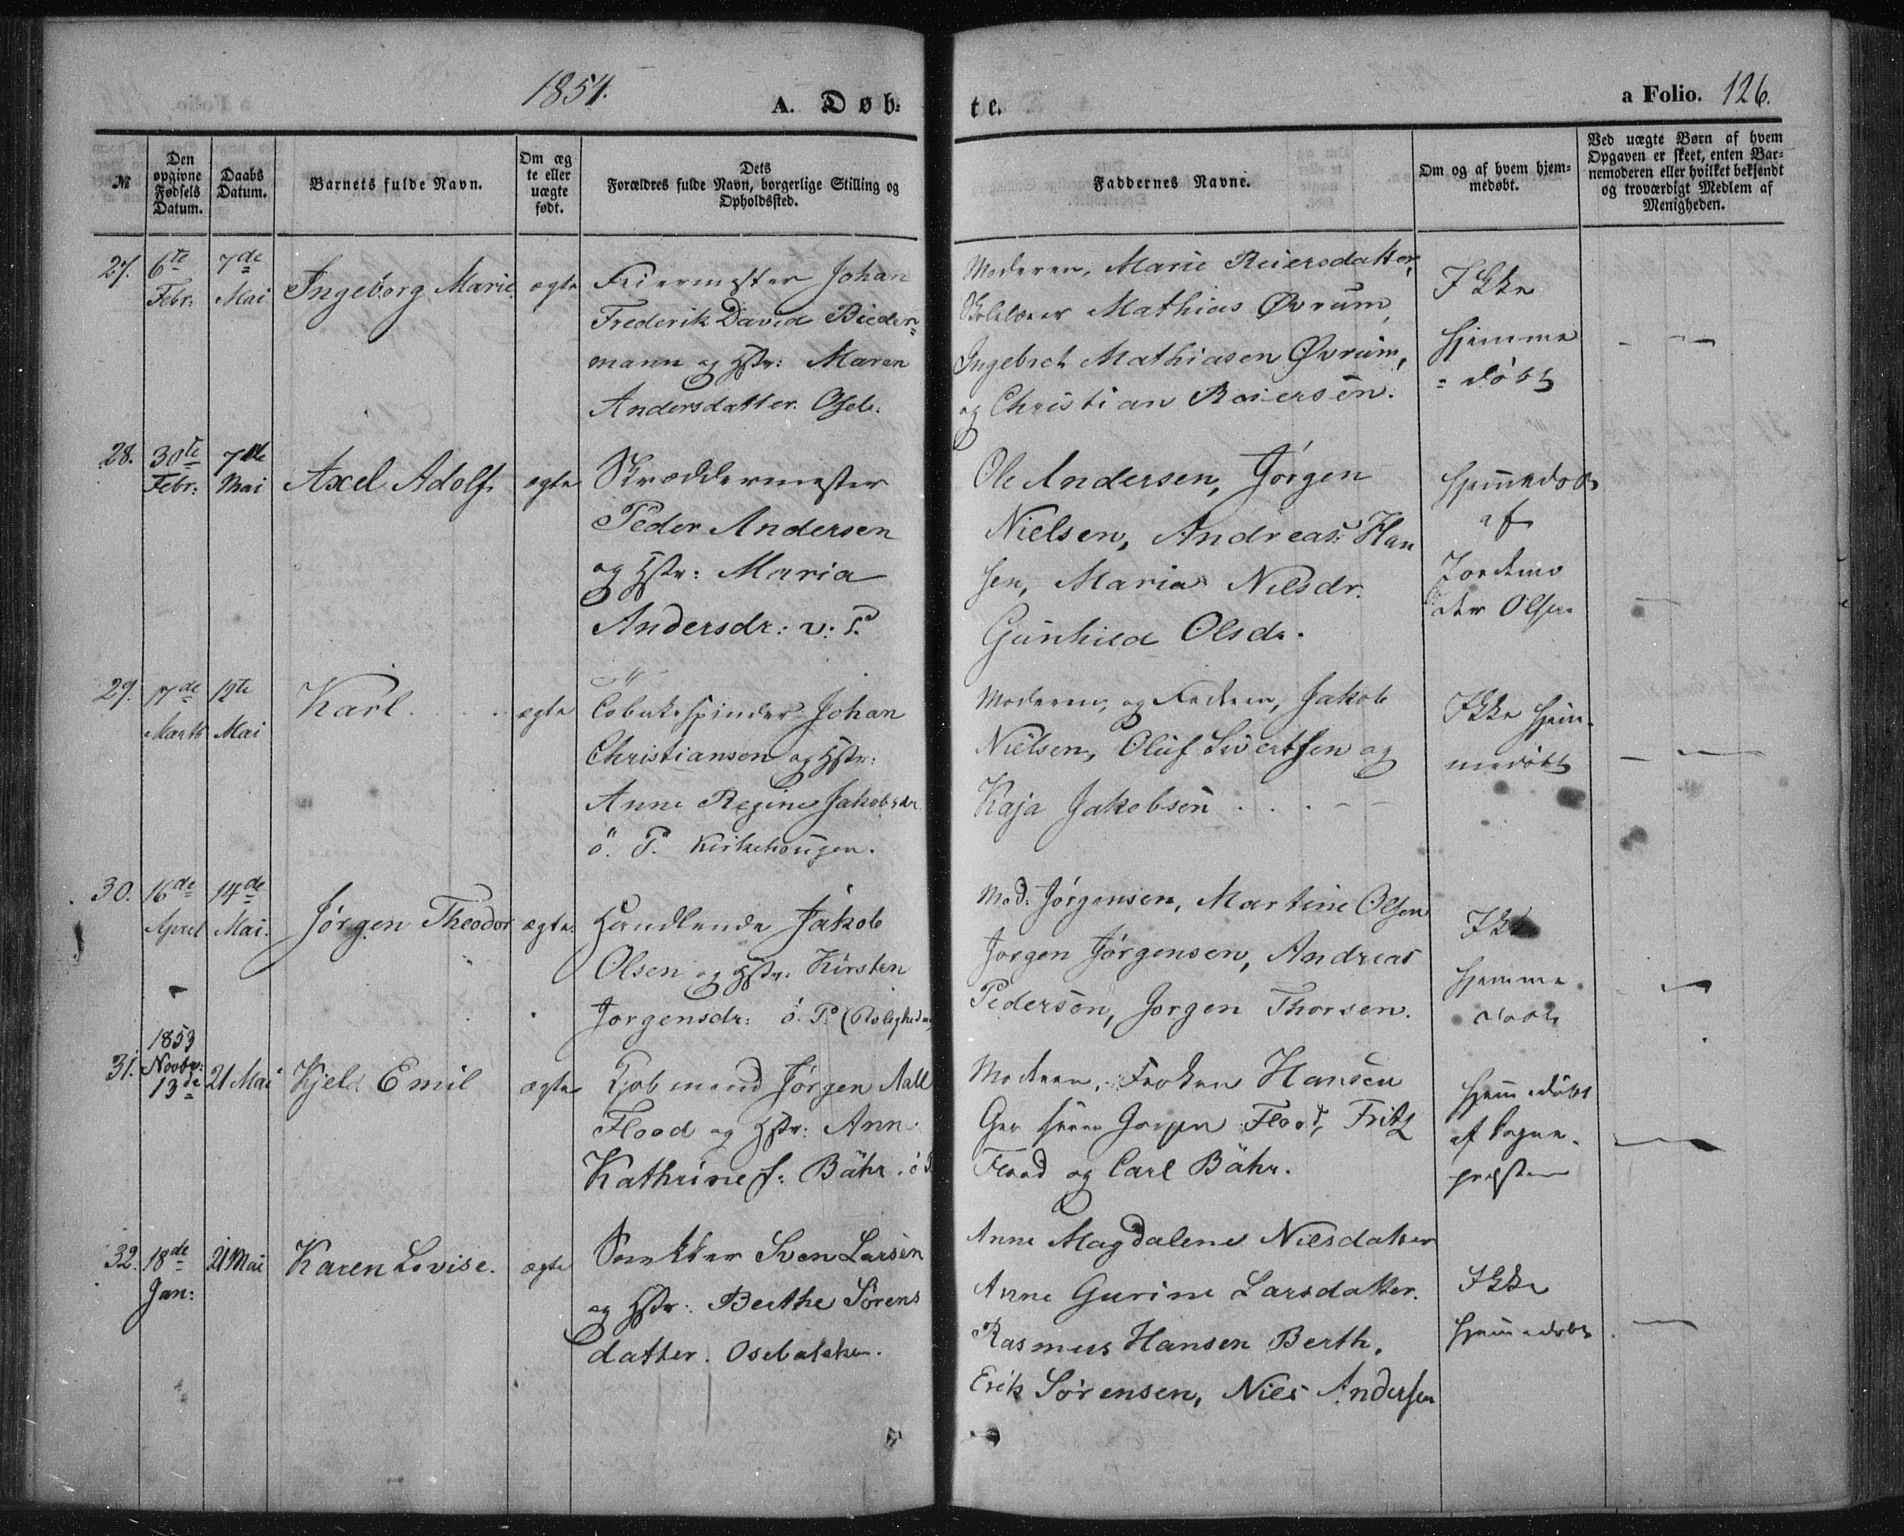 1854.
A. Døb-
te.
a Folio. 126.
№
Den opgivne Fødsels Datum.
Daabs Datum.
Barnets fulde Navn.
Om æg te eller uægte født.
Dets Forældres fulde Navn, borgerlige Stilling og Opholdssted.
Faddernes Navne.
Om og af hvem hjem-medøbt.
Ved uægte Børn af hvem Opgaven er skeet, enten Bar-nemoderen eller hvilket bekjendt og troværdigt Medlem af Menigheden.
27.
6te
Febr:
7de
Mai
Ingeborg Marie
ægte
Feiermester Johan
Frederik David Bieder-
mann og Hstr: Maren
Andersdatter. Oseb.
Moderen, Marie Reiersdatter,
Skolelærer Mathias Øvrum,
Ingebret Mathiasen Øvrum,
og Christian Reiersen.
Ikke
hjemme
= døbt
28.
30te
Febr:
7de
Mai
Axel Adolf.
ægte
Skræddermester
Peder Andersen
og Hstr: Maria
Andersdr: v: P.
Ole Andersen, Jørgen
Nielsen, Andreas Han
sen, Maria Nilsdr.
Gunhild Olsdr.
hjemmedøbt
af
Jordemo
der Olsen
29.
17de
Marts
12te
Mai
Karl.
ægte
Tobaksspinder Johan
Christiansen og Hstr:
Anne Regine Jakobsdr.
ö. P. Kirkehougen.
Moderen, og Faderen, Jakob
Nielsen, Oluf Sivertsen og
Kaja Jakobsen
Ikke hjem-
medøbt
30.
16de
April
14de
Mai.
Jørgen Theodor
ægte.
Handlende Jakob
Olsen og Hstr: Kirsten
Jørgensdr: ö. P. (Roligheden)
Mad: Jørgensen, Martine Olsen
Jørgen Jørgensen, Andreas
Pedersen, Jørgen Thorsen.
Ikke
hjemme
døbt
31.
1853
Novbr:
13de
21 Mai
Kjeld Emil
ægte
Kjøbmand Jørgen Aall
Flood og Hstr: Ann
Kathrine f: Bähr. ö P
Moderen, Frøken Hansen
Jørgen Flood, Fritz
Flood og Carl Bähr.
hjemmedøbt
af Sogne-
præsten
32.
18de
Jan:
21 Mai
Karen Lovise.
ægte
Snekker Sven Larsen
og Hstr: Berthe Sørens
datter. Osebakken.
Anne Magdalene Nilsdatter
Anne Gurine Larsdatter.
Rasmus Hansen Berth,
Erik Sørensen, Niels Andersen
Ikke
hjemmedøbt